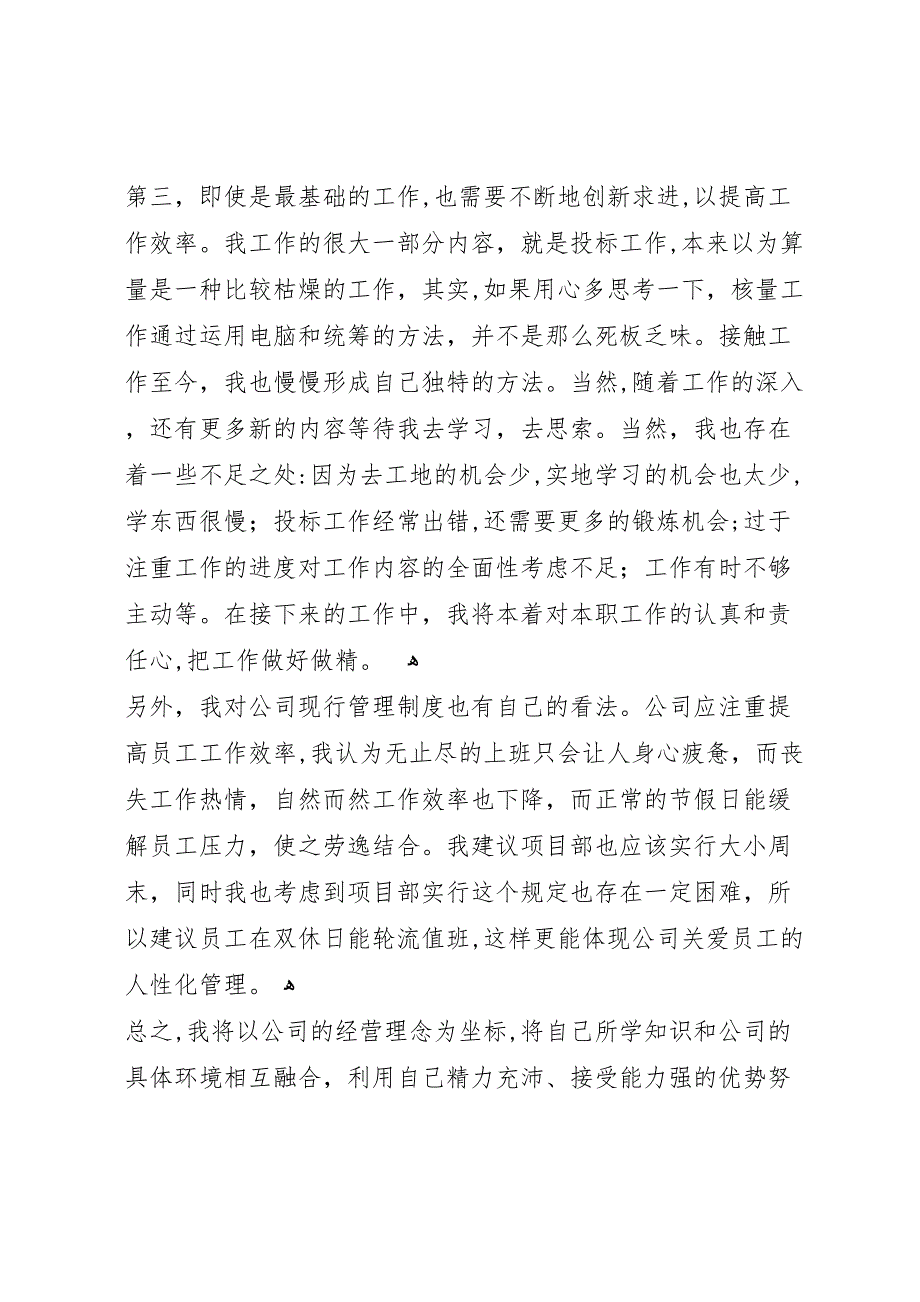 第三，即使是最基础的工作,也需要不断地创新求进,以提高工
作效率。我工作的很大一部分内容，就是投标工作,本来以为算
量是一种比较枯燥的工作，其实,如果用心多思考一下，核量工
作通过运用电脑和统筹的方法，并不是那么死板乏味。接触工
作至今，我也慢慢形成自己独特的方法。当然,随着工作的深入
，还有更多新的内容等待我去学习，去思索。当然，我也存在
着一些不足之处:因为去工地的机会少,实地学习的机会也太少,
学东西很慢；投标工作经常出错,还需要更多的锻炼机会;过于
注重工作的进度对工作内容的全面性考虑不足；工作有时不够
主动等。在接下来的工作中，我将本着对本职工作的认真和责
任心,把工作做好做精。 ﻬ
另外，我对公司现行管理制度也有自己的看法。公司应注重提
高员工工作效率,我认为无止尽的上班只会让人身心疲惫，而丧
失工作热情，自然而然工作效率也下降，而正常的节假日能缓
解员工压力，使之劳逸结合。我建议项目部也应该实行大小周
末，同时我也考虑到项目部实行这个规定也存在一定困难，所
以建议员工在双休日能轮流值班,这样更能体现公司关爱员工的
人性化管理。 ﻬ
总之,我将以公司的经营理念为坐标,将自己所学知识和公司的
具体环境相互融合，利用自己精力充沛、接受能力强的优势努